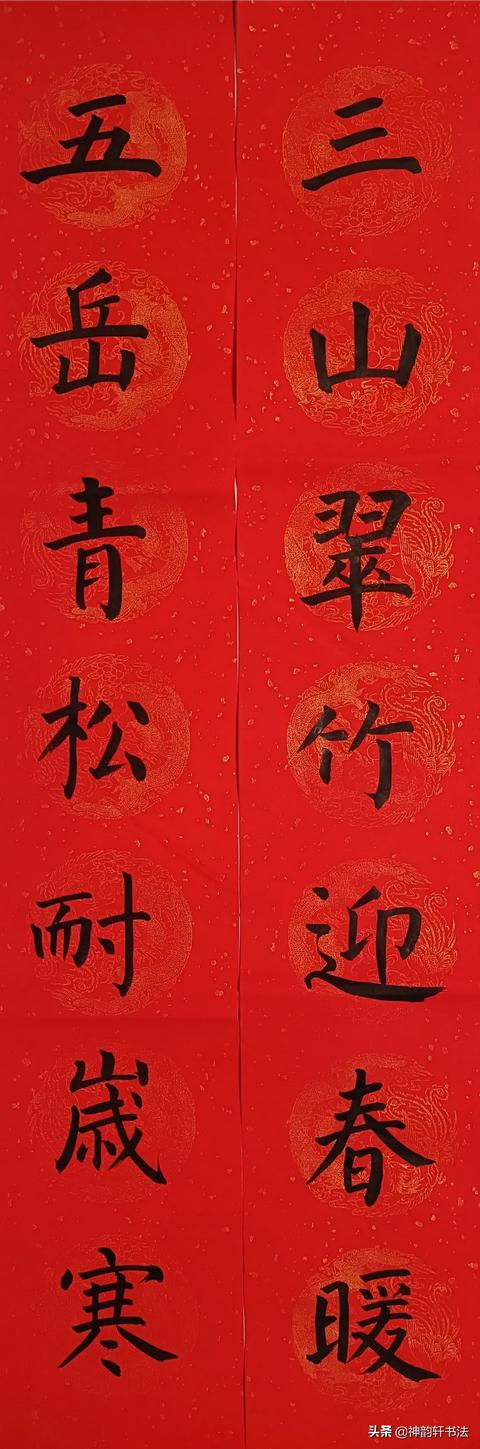 三山翠竹迎春暖
五岳青松耐歲寒
头条 @神韵轩书法